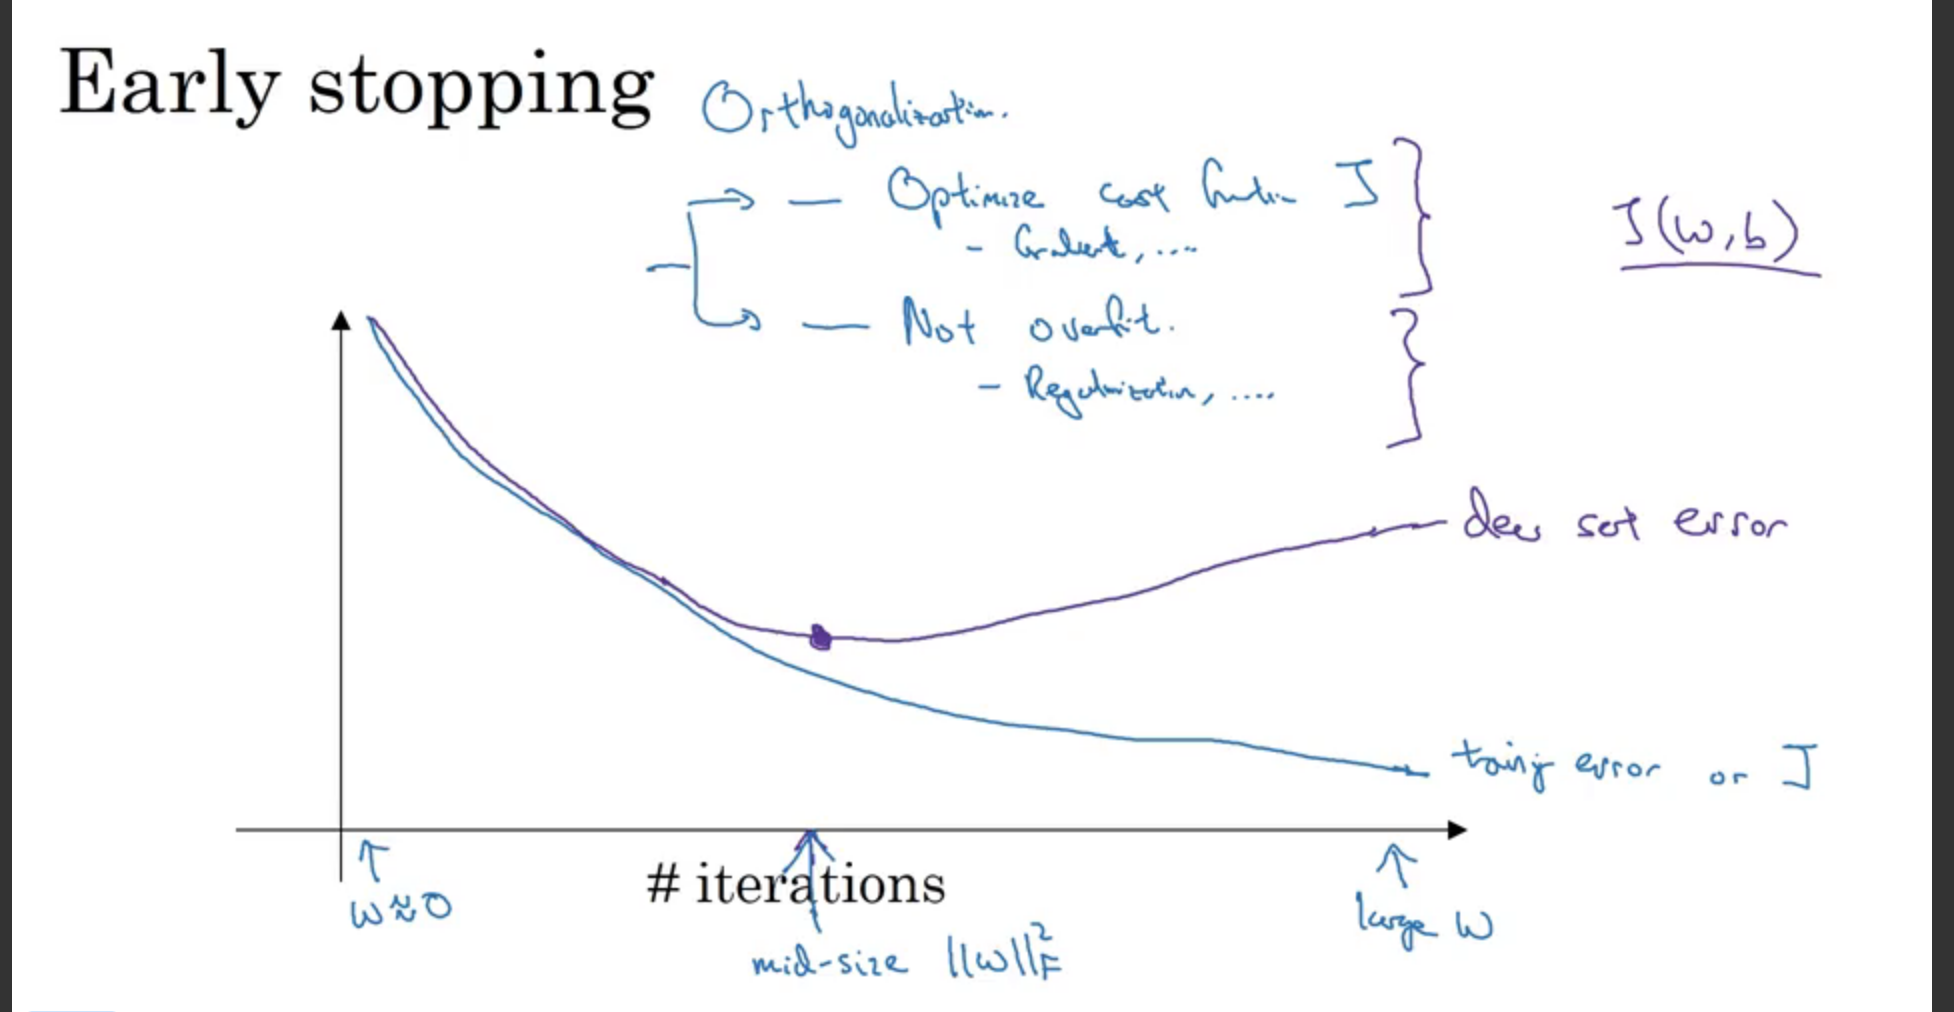 Early stopping
Orthogonalization.
— Optimize cost function J
- Gradient, ....
J(w,b)
— Not overfit.
- Regularization, ....
dev set error
training error or J
# iterations
w≈0
large w
mid-size ||w||²_F